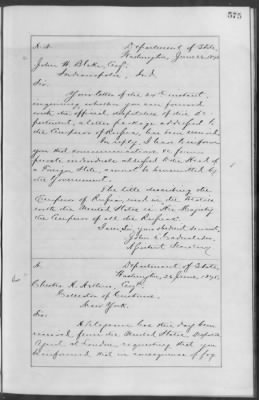 575
Department of State,
Washington, June 26, 18
John H. Blake, Esq.
Indianapolis, Ind.
Sir:
Your letter of the 20th instant,
enquiring whether you can forward
with the official dispatches of this De-
partment, a letter package addressed to
the Emperor of Russia, has been received.
In reply, I have to inform
you that communications, &c. from
private individuals addressed to the Head of
a Foreign State, cannot be transmitted by
the Government.
The title describing the
Emperor of Russia, used in the treaties
with the United States is "His Majesty
the Emperor of all the Russias."
I am, Sir, your obedient servant,
John L. Cadwalader,
Assistant Secretary
Department of State,
Washington, 26 June, 187
Charles K.
Collector of Customs,
New York.
Sir:
A telegram has this day been
received from the United States Despatch
Agent at London requesting that you
be informed that in consequence of fog